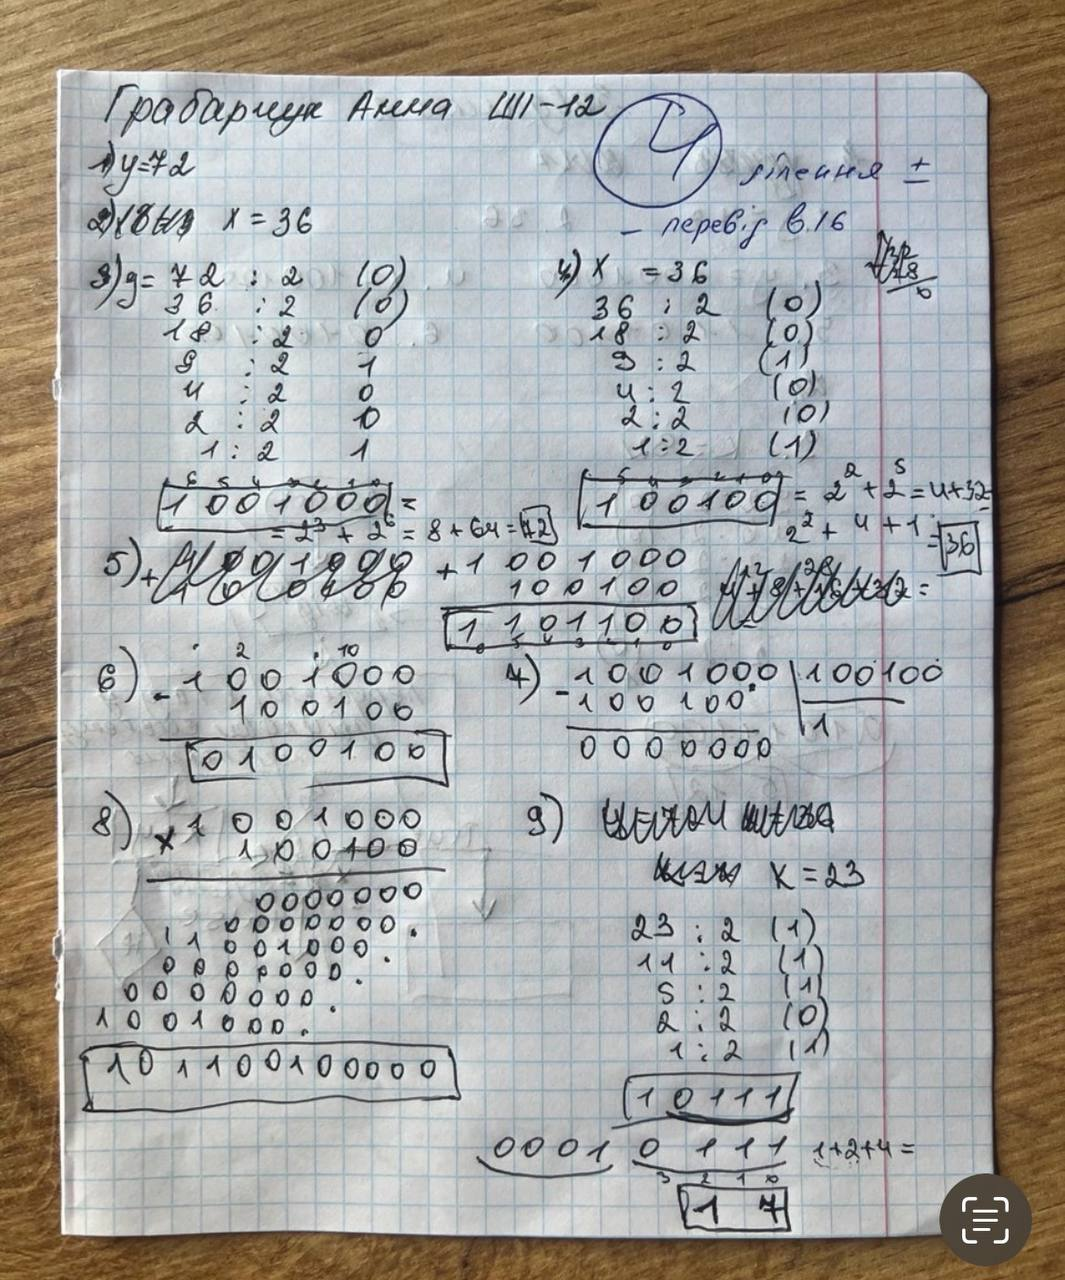 Грабарчук Анна ШІ-12
4
ділення ±
1) y=72
— перевід в 16
2) x = 36
3) y= 72 : 2 (0)
36 : 2 (0)
18 : 2 0
9 : 2 1
4 : 2 0
2 : 2 0
1 : 2 1
6 5 4 3 2 1 0
1001000 =
= 2³ + 2⁶ = 8 + 64 = 72
4) x = 36
36 : 2 (0)
18 : 2 (0)
9 : 2 (1)
4 : 2 (0)
2 : 2 (0)
1 : 2 (1)
5 4 3 2 1 0
100100 = 2² + 2⁵ = 4+32=
= 36
5) + 1001000
100100
1101100
6 5 4 3 2 1 0
6) 2 10
- 1001000
100100
0100100
7) - 1001000 | 100100
100100 1
0000000
8) x 1001000
100100
0000000
0000000.
1001000.
0000000.
0000000.
1001000.
101100100000
9) x = 23
23 : 2 (1)
11 : 2 (1)
5 : 2 (1)
2 : 2 (0)
1 : 2 (1)
10111
0001 0111 1+2+4=
3 2 1 0
1 7